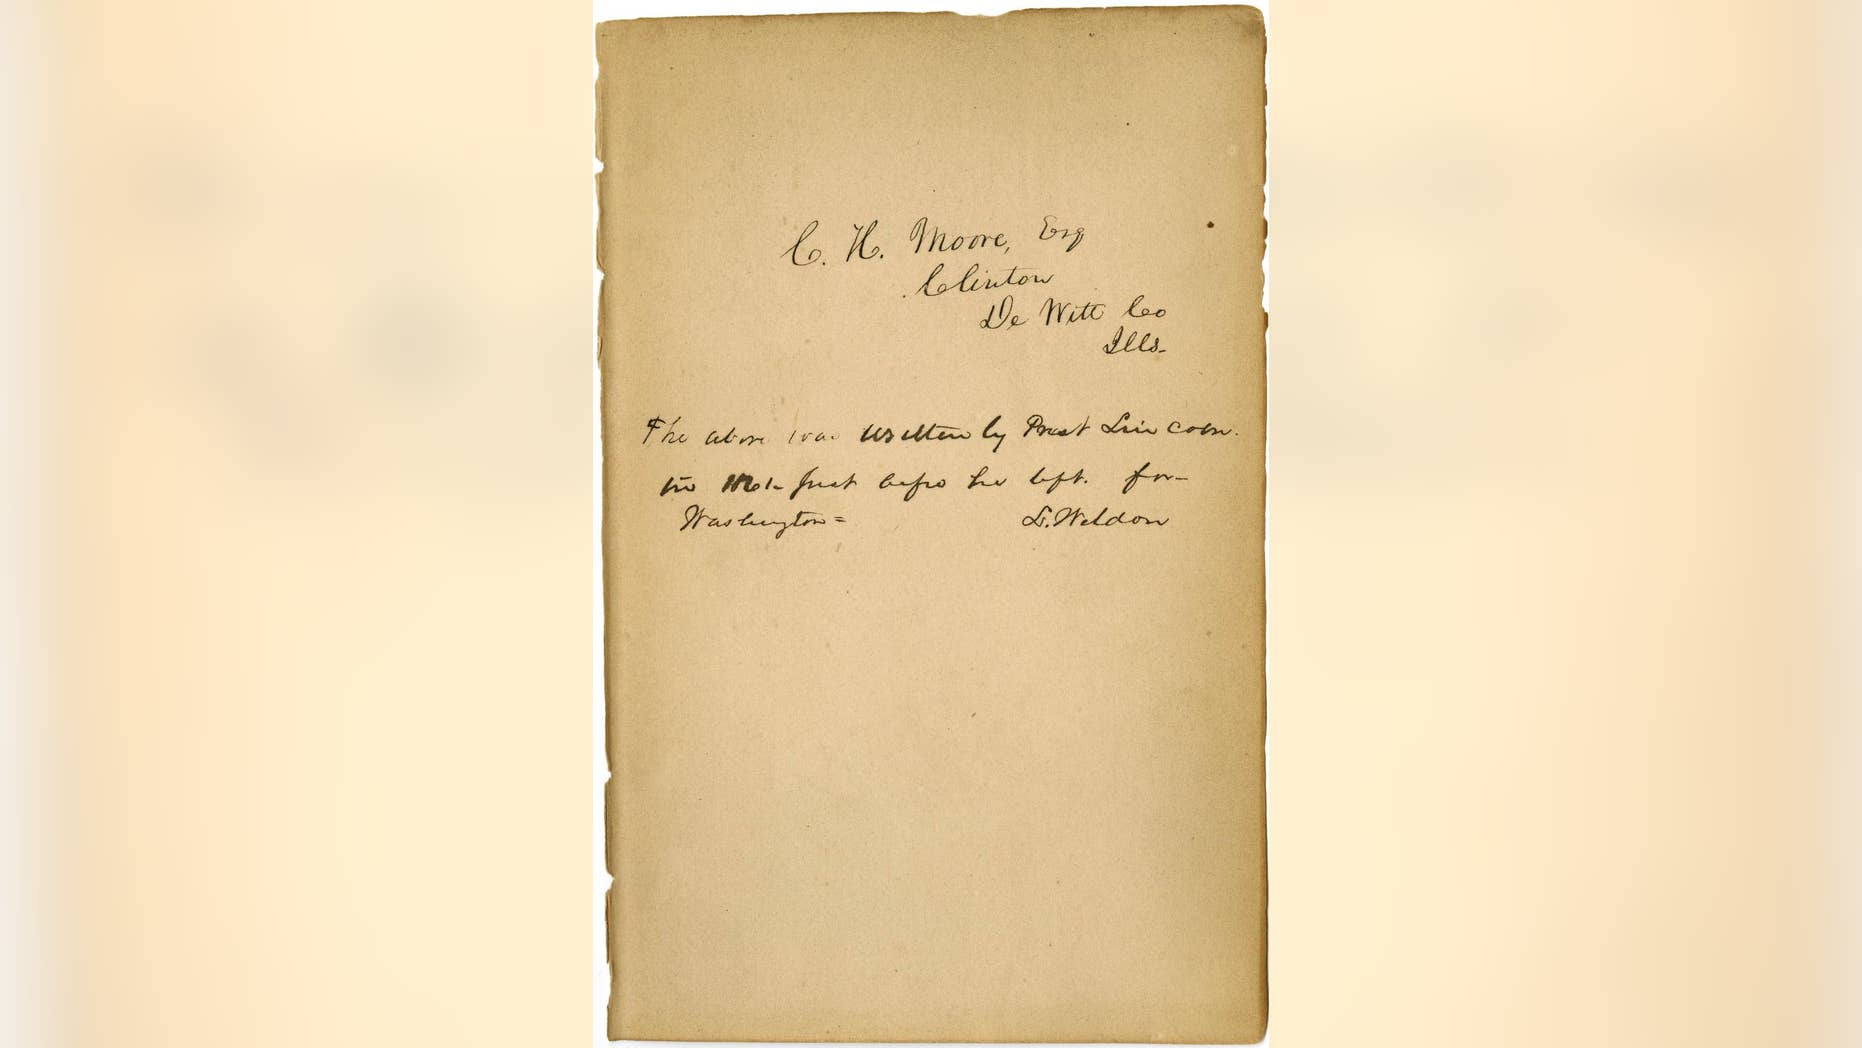 C. H. Moore, Esq
Clinton
De Witt Co
Ills.
The above was written by Prest Lincoln.
in 1861- just before he left. for-
Washington=
L. Weldon